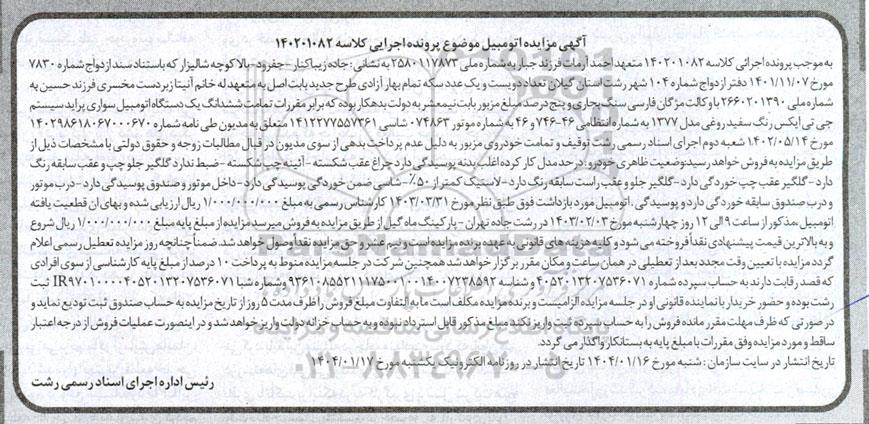 آگهی مزایده اتومبیل موضوع پرونده اجرایی کلاسه ۱۴۰۲۰۱۰۸۲
به موجب پرونده اجرائی کلاسه ۱۴۰۲۰۱۰۸۲ متعهد احمد آرمات فرزند جبار به شماره ملی ۲۵۸۰۱۱۷۸۷۳ به نشانی: جاده زیباکنار - جفرود - بالا کوچه شالیزار که باستناد سند ازدواج شماره ۷۸۳۰
مورخ ۱۴۰۱/۱۱/۰۷ دفتر ازدواج شماره ۱۰۴ شهر رشت استان گیلان تعداد دویست و یک عدد سکه تمام بهار آزادی طرح جدید بابت اصل به متعهدله خانم آنیتا زبردست مخسری فرزند حسین به
شماره ملی ۲۶۶۰۲۰۱۳۹۰ با وکالت مژگان فارسی سنگ بجاری و پنج درصد مبلغ مزبور بابت نیمعشر به دولت بدهکار بوده که برابر مقررات تمامت ششدانگ یک دستگاه اتومبیل سواری پراید سیستم
جی تی ایکس رنگ سفید روغنی مدل ۱۳۷۷ به شماره انتظامی ۴۶-۷۴۶ و ۴۶ به شماره موتور ۰۷۴۸۶۳ شاسی ۱۴۱۲۲۷۷۵۵۷۳۶۱ متعلق به مدیون طی نامه شماره ۱۴۰۲۹۸۶۱۸۰۶۷۰۰۰۶۷۰
مورخ ۱۴۰۲/۰۵/۱۴ شعبه دوم اجرای اسناد رسمی رشت توقیف و تمامت خودروی مزبور به دلیل عدم پرداخت بدهی از سوی مدیون در قبال مطالبات زوجه و حقوق دولتی با مشخصات ذیل از
طریق مزایده به فروش خواهد رسید وضعیت ظاهری خودرو: در حد مدل کار کرده اغلب بدنه پوسیدگی دارد چراغ عقب شکسته - آئینه چپ شکسته - ضبط ندارد گلگیر جلو چپ و عقب سابقه رنگ
دارد - گلگیر عقب چپ خوردگی دارد - گلگیر جلو و عقب راست سابقه رنگ دارد - لاستیک کمتر از ۵۰٪ - شاسی ضمن خوردگی پوسیدگی دارد - داخل موتور و صندوق پوسیدگی دارد - درب موتور
و درب صندوق سابقه خوردگی دارد و پوسیدگی. اتومبیل مورد بازداشت فوق طبق نظر مورخ ۱۴۰۳/۰۳/۳۱ کارشناس رسمی به مبلغ ۱/۰۰۰/۰۰۰/۰۰۰ ریال ارزیابی شده و بهای آن قطعیت یافته
اتومبیل مذکور از ساعت ۹ الی ۱۲ روز چهارشنبه مورخ ۱۴۰۳/۰۲/۰۳ در رشت جاده تهران - پارکینگ ماه گیل از طریق مزایده به فروش میرسد مزایده از مبلغ پایه مبلغ ۱/۰۰۰/۰۰۰/۰۰۰ ریال شروع
و به بالاترین قیمت پیشنهادی نقداً فروخته می شود و کلیه هزینه های قانونی به عهده برنده مزایده است و نیم عشر و حق مزایده نقداً وصول خواهد شد. ضمناً چنانچه روز مزایده تعطیل رسمی اعلام
گردد مزایده با تعیین وقت مجدد بعد از تعطیلی در همان ساعت و مکان مقرر برگزار خواهد شد همچنین شرکت در جلسه مزایده منوط به پرداخت ۱۰ درصد از مبلغ پایه کارشناسی از سوی افرادی
که قصد رقابت دارند به حساب سپرده شماره ۴۰۵۲۰۱۳۲۰۷۵۳۶۰۷۱ و شناسه ۹۳۶۱۰۸۵۵۲۱۱۱۷۵۰۰۱۰۰۱۴۰۰۷۲۳۸۵۹۲ و شماره شبا IR۹۷۰۱۰۰۰۰۴۰۵۲۰۱۳۲۰۷۵۳۶۰۷۱ ثبت
رشت بوده و حضور خریدار یا نماینده قانونی او در جلسه مزایده الزامیست و برنده مزایده مکلف است مابه التفاوت مبلغ فروش را ظرف مدت ۵ روز از تاریخ مزایده به حساب صندوق ثبت تودیع نماید و
در صورتی که ظرف مهلت مقرر مانده فروش را به حساب سپرده ثبت واریز نکند مبلغ مذکور قابل استرداد نبوده و به حساب خزانه دولت واریز خواهد شد و در اینصورت عملیات فروش از درجه اعتبار
ساقط و مورد مزایده وفق مقررات با مبلغ پایه به بستانکار واگذار می گردد.
تاریخ انتشار در سایت سازمان: شنبه مورخ ۱۴۰۴/۰۱/۱۶ تاریخ انتشار در روزنامه الکترونیک یکشنبه مورخ ۱۴۰۴/۰۱/۱۷
رئیس اداره اجرای اسناد رسمی رشت